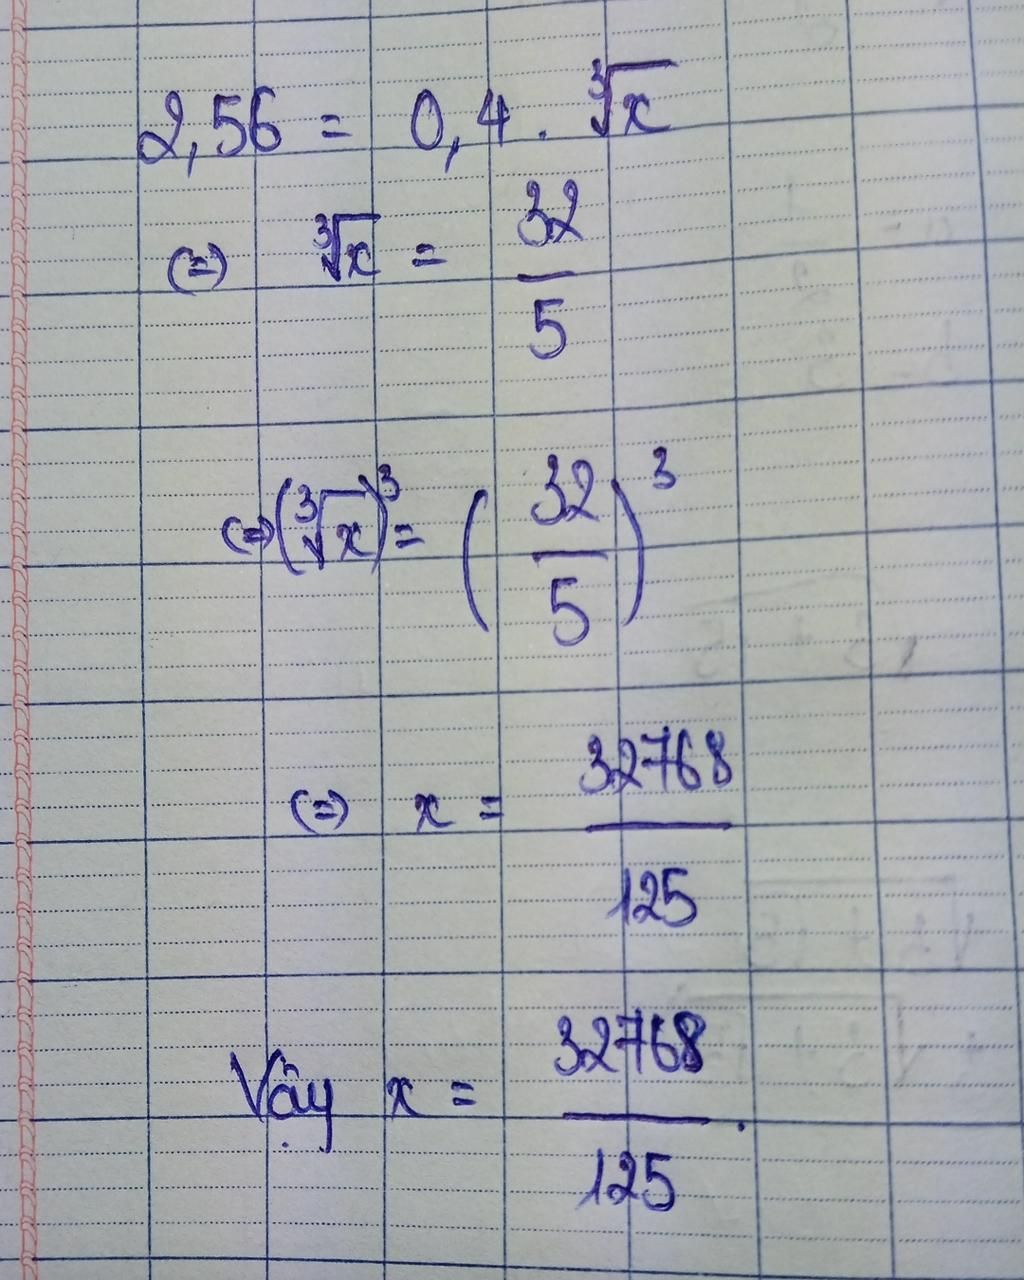 2,56 = 0,4 . ∛x
(=) ∛x = 32/5
(=) (∛x)³ = (32/5)³
(=) x = 32768/125
Vậy x = 32768/125.